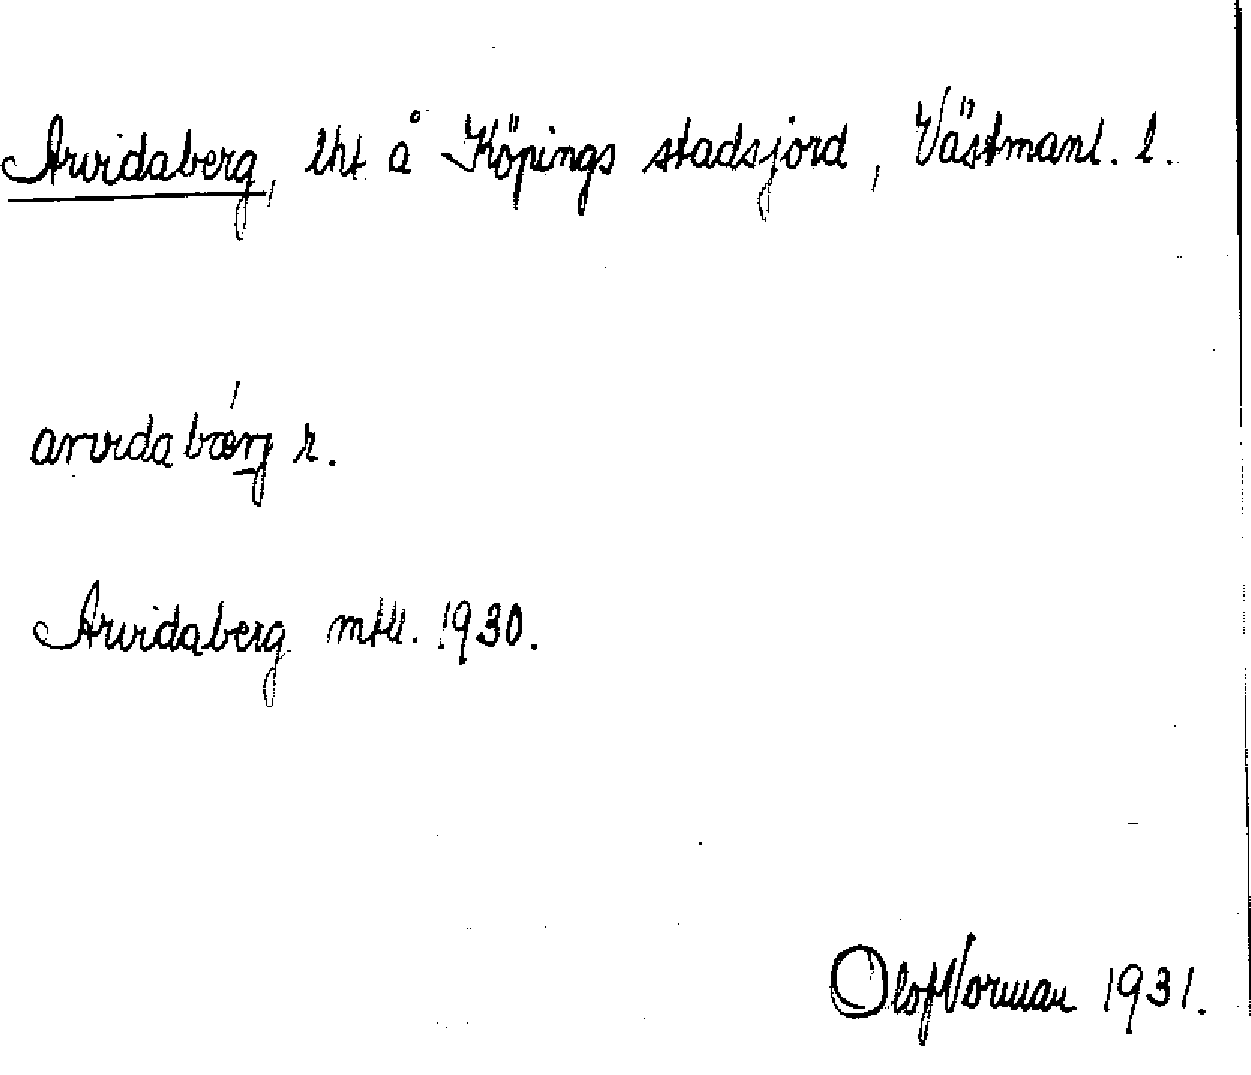 Arvidaberg, lht å Köpings stadsjord, Västmanl. l.
arvidabærj r.
Arvidaberg mtll. 1930.
Olof Vorman 1931.